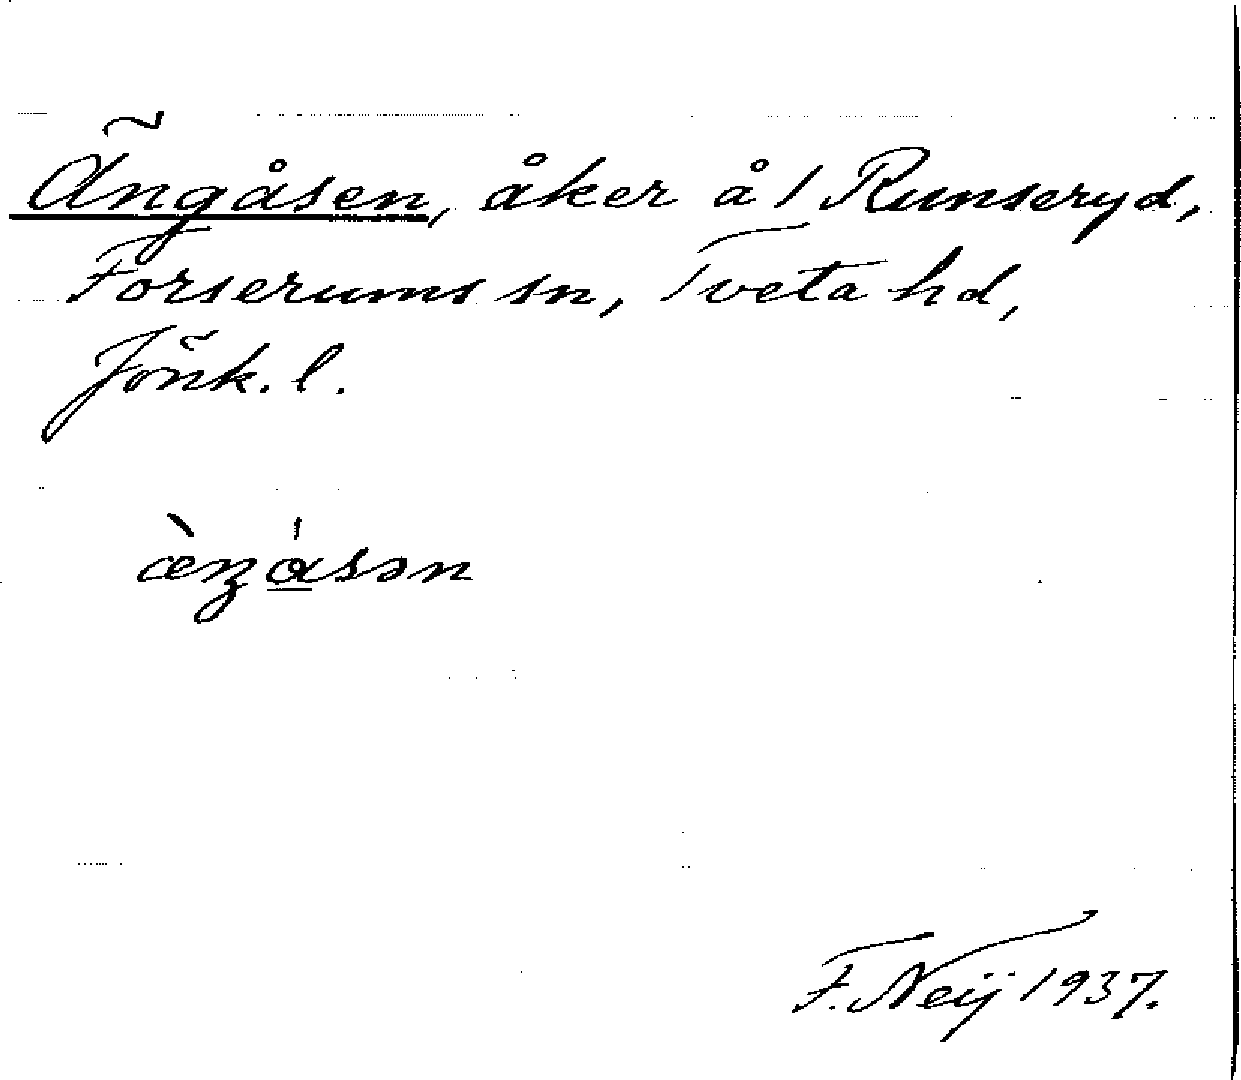 Ängåsen, åker å 1 Runseryd,
Forserums sn, Tveta hd,
Jönk. l.
æ̀ŋά̲sən
F. Neij 1937.